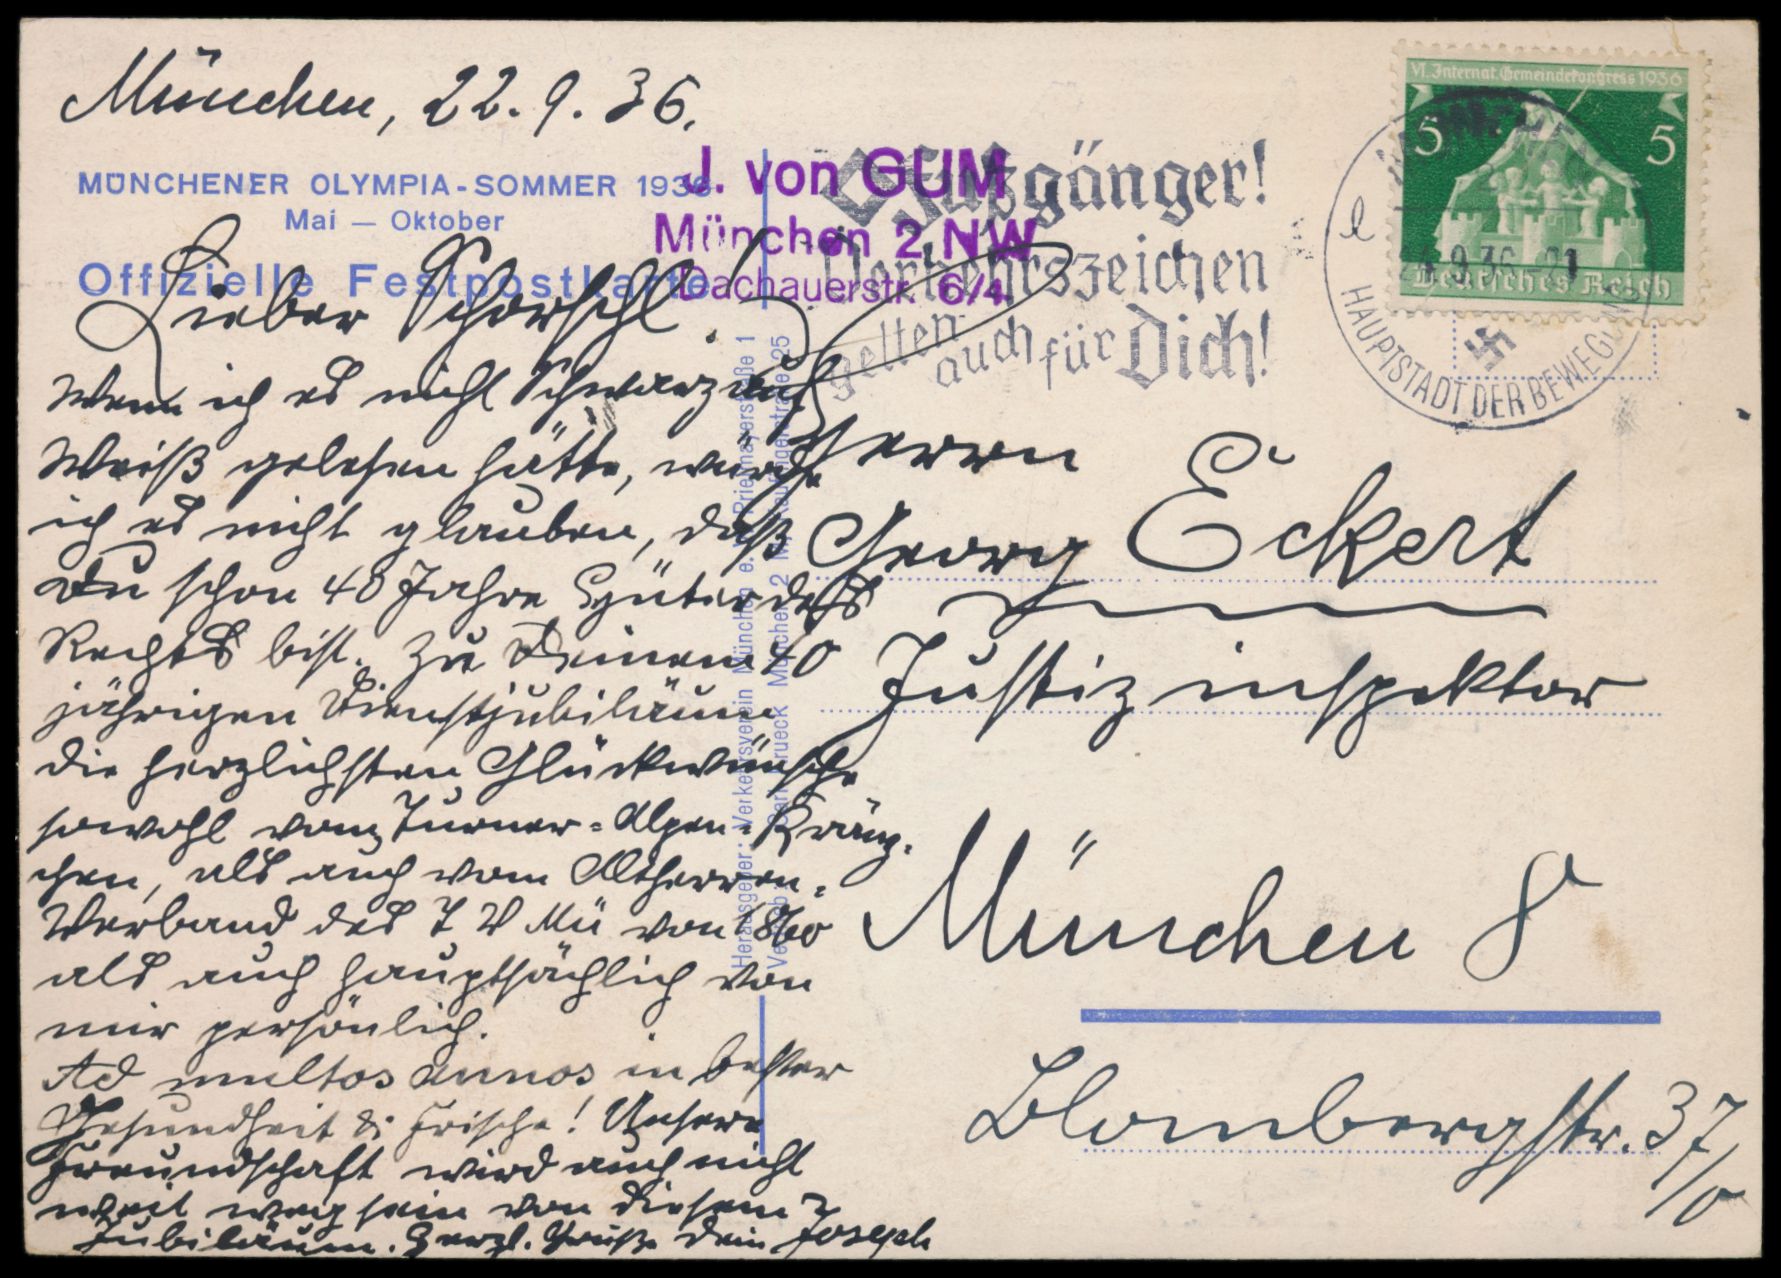 München, 22.9.36.
MÜNCHENER OLYMPIA-SOMMER 1936
Mai — Oktober
Offizielle Festpostkarte
J. von GUM
München 2 NW
Dachauerstr. 6/4
Fußgänger!
Verkehrszeichen
gelten
auch für Dich!
VI. Internat. Gemeindekongress 1936
5 5
Deutsches Reich
MÜNCHEN
24.9.36-21
HAUPTSTADT DER BEWEGUNG
Lieber Schorschl!
Wenn ich es nicht Schwarz auf
Weiß gelesen hätte, würde
ich es nicht glauben, daß
Du schon 40 Jahre Hüter des
Rechts bist. Zu Deinem 40
jährigen Dienstjubiläum
die herzlichsten Glückwünsche
sowohl vom Turner-Alpen-Kränz-
chen, als auch vom Altherren-
Verband des T V Mü von 1860
als auch hauptsächlich von
mir persönlich.
Ad multos annos in bester
Gesundheit & Frische! Unsere
Freundschaft wird auch nicht
weit weg sein von diesem
Jubiläum. Herzl. Grüße Dein Joseph
Herausgeber: Verkehrsverein München e.V. Prielmayerstraße 1
München 2 M, Kaufingerstraße 25
Herrn
Georg Eckert
Justizinspektor
München 8
Blombergstr. 37/0